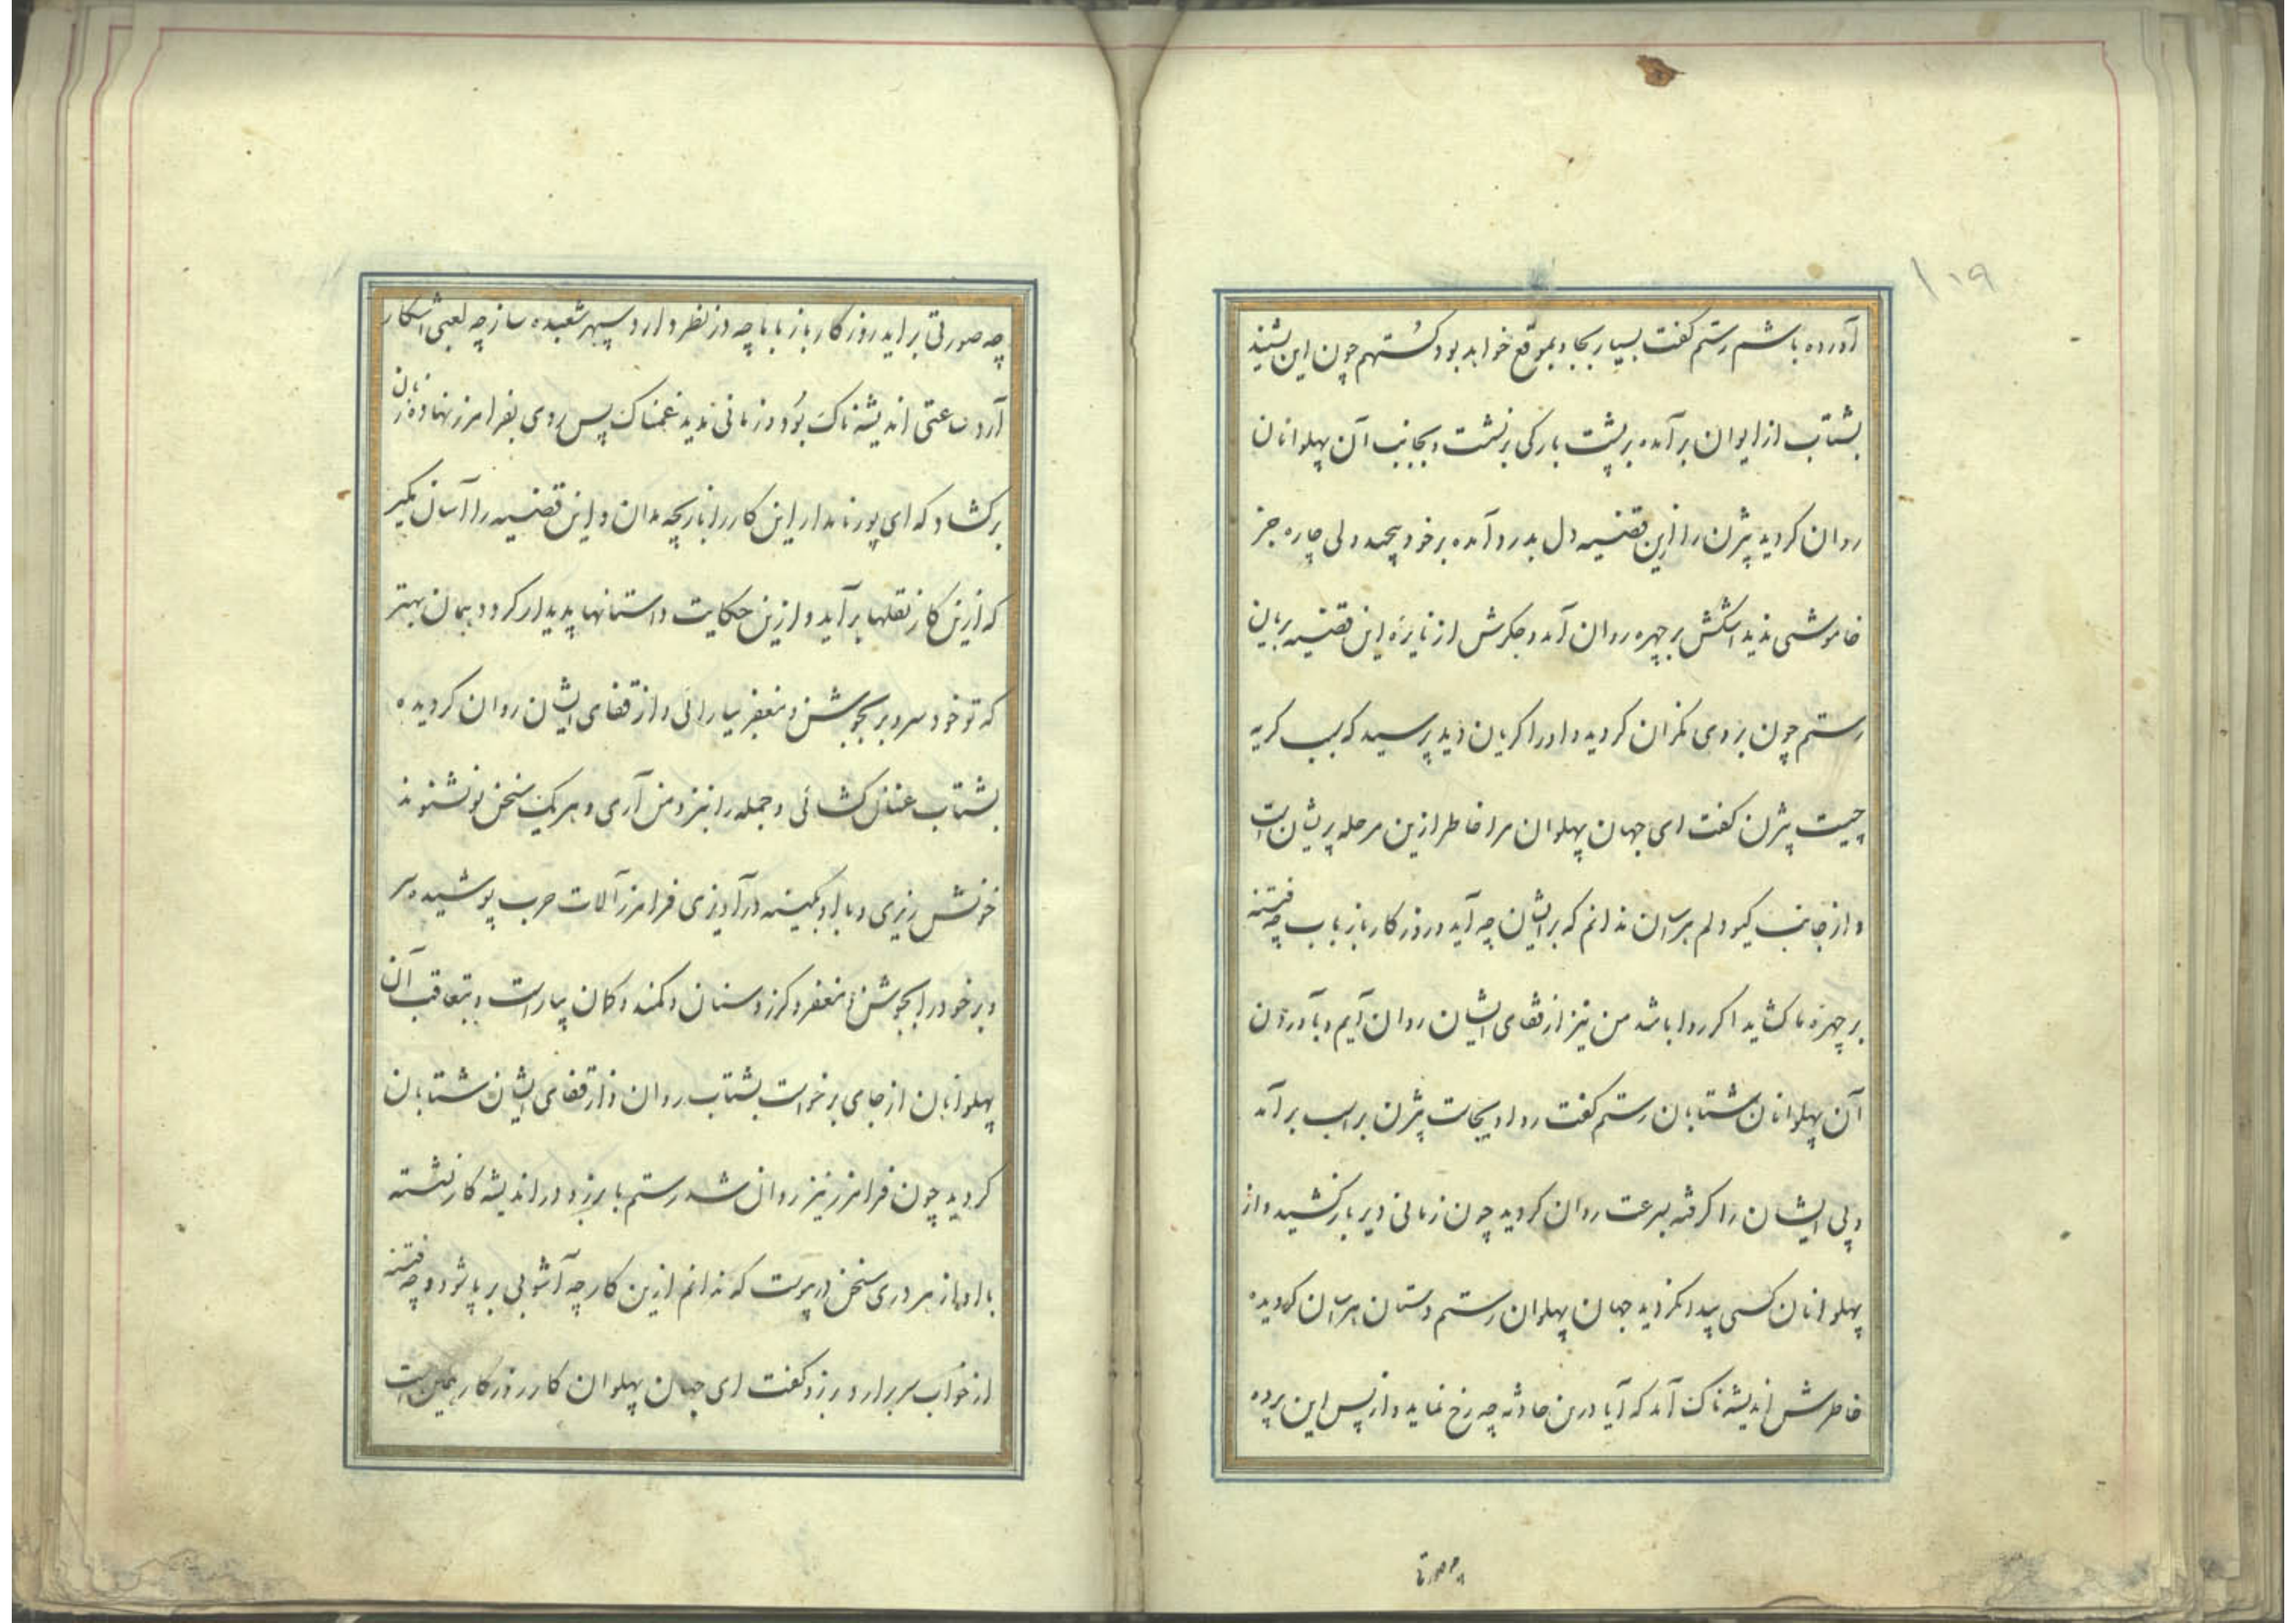 ۱۱۹
آورده باشم رستم گفت بسیار بجا و بموقع خواهد بود گستهم چون این بشنید
بشتاب از ایوان برآمده بر پشت بارکی بر نشست و بجانب آن پهلوانان
روان کردید بیژن را ازین قضیه دل بدرد آمده بر خود پیچید ولی چاره جز
خاموشی ندید اشکش بر چهره روان آمد و جکرش از نایره این قضیه بریان
رستم چون بروی نکران کردید و او را کریان دید پرسید که سبب کریه
چیست بیژن گفت ای جهان پهلوان مرا خاطر ازین مرحله پریشان است
و از جانب کیو دلم هراسان ندانم که بر ایشان چه آید و روزکار بازباب چه فتنه
بر چهره ما کشاید اکر روا باشد من نیز از قفای ایشان روان آیم و بآوردن
آن پهلوانان شتابان رستم گفت روا و بجاست بیژن بر اسب برآمد
و پی ایشان را کرفته بسرعت روان کردید چون زمانی دیر باز کشید و از
پهلوانان کسی پیدا نکردید جهان پهلوان رستم دستان هراسان کردیده
خاطرش اندیشه ناک آمد که آیا درین حادثه چه رخ نماید و از پس این پرده
چه صورتی
چه صورتی براید روزکار باز با ما چه در نظر دارد و سپهر شعبده ساز چه لعبی اشکار
آرد ساعتی اندیشه ناک بود و زمانی ندید غمناک پس روی بفرامرز نهاده زبان
برکشاد که ای پور نامدار این کار را بازیچه مدان و این قضیه را آسان مکیر
که ازین کار نقلها برآید و ازین حکایت داستانها پدیدار کردد همان بهتر
که تو خود سر و بر بجوشن و مغفر بیارائی و از قفای ایشان روان کردیده
بشتاب عنان کشائی و جمله را نزد من آری و هر یک سخن تو نشنوند
خونش ریزی و با او بکینه درآویزی فرامرز آلات حرب پوشیده سر
و بر خود را بجوشن و مغفر و کرز و سنان و کمند و کمان بیاراست و بتعاقب آن
پهلوانان از جای برخواست بشتاب روان و از قفای ایشان شتابان
کردید چون فرامرز نیز روان شد رستم با برزو در اندیشه کار نشسته
با او از هر دری سخن درپیوست که ندانم ازین کار چه آشوبی بر پا شود و چه فتنه
از خواب سر برارد برزو کفت ای جهان پهلوان کار روزکار همین است